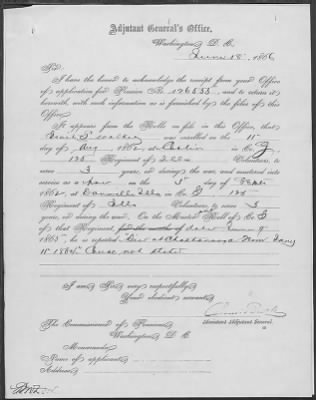 Adjutant General's Office,
Washington, D. C.
June 18, 1866
Sir:
I have the honor to acknowledge the receipt from your Office
of application for Pension No. 126533, and to return it
herewith, with such information as is furnished by the files of this
Office.
It appears from the Rolls on file in this Office, that
was enrolled on the 11
day of Aug, 1862, at in Co. G,
125 Regiment of Ills Volunteers, to
serve 3 years, or during the war, and mustered into
service as a on the 3 day of Sept
1862, at Danville Ills in Co. G 125
Regiment of Ills Volunteers, to serve 3
years, or during the war. On the Muster Roll of Co. G
of that Regiment, dated June 9
1865, he is reported Died at Chattanooga Tenn Jany
11 1864. Cause not stated
I am, Sir, very respectfully,
Your obedient servant,
Assistant Adjutant General.
The Commissioner of Pensions,
Washington, D. C.
Memoranda:
Name of applicant,
Address,